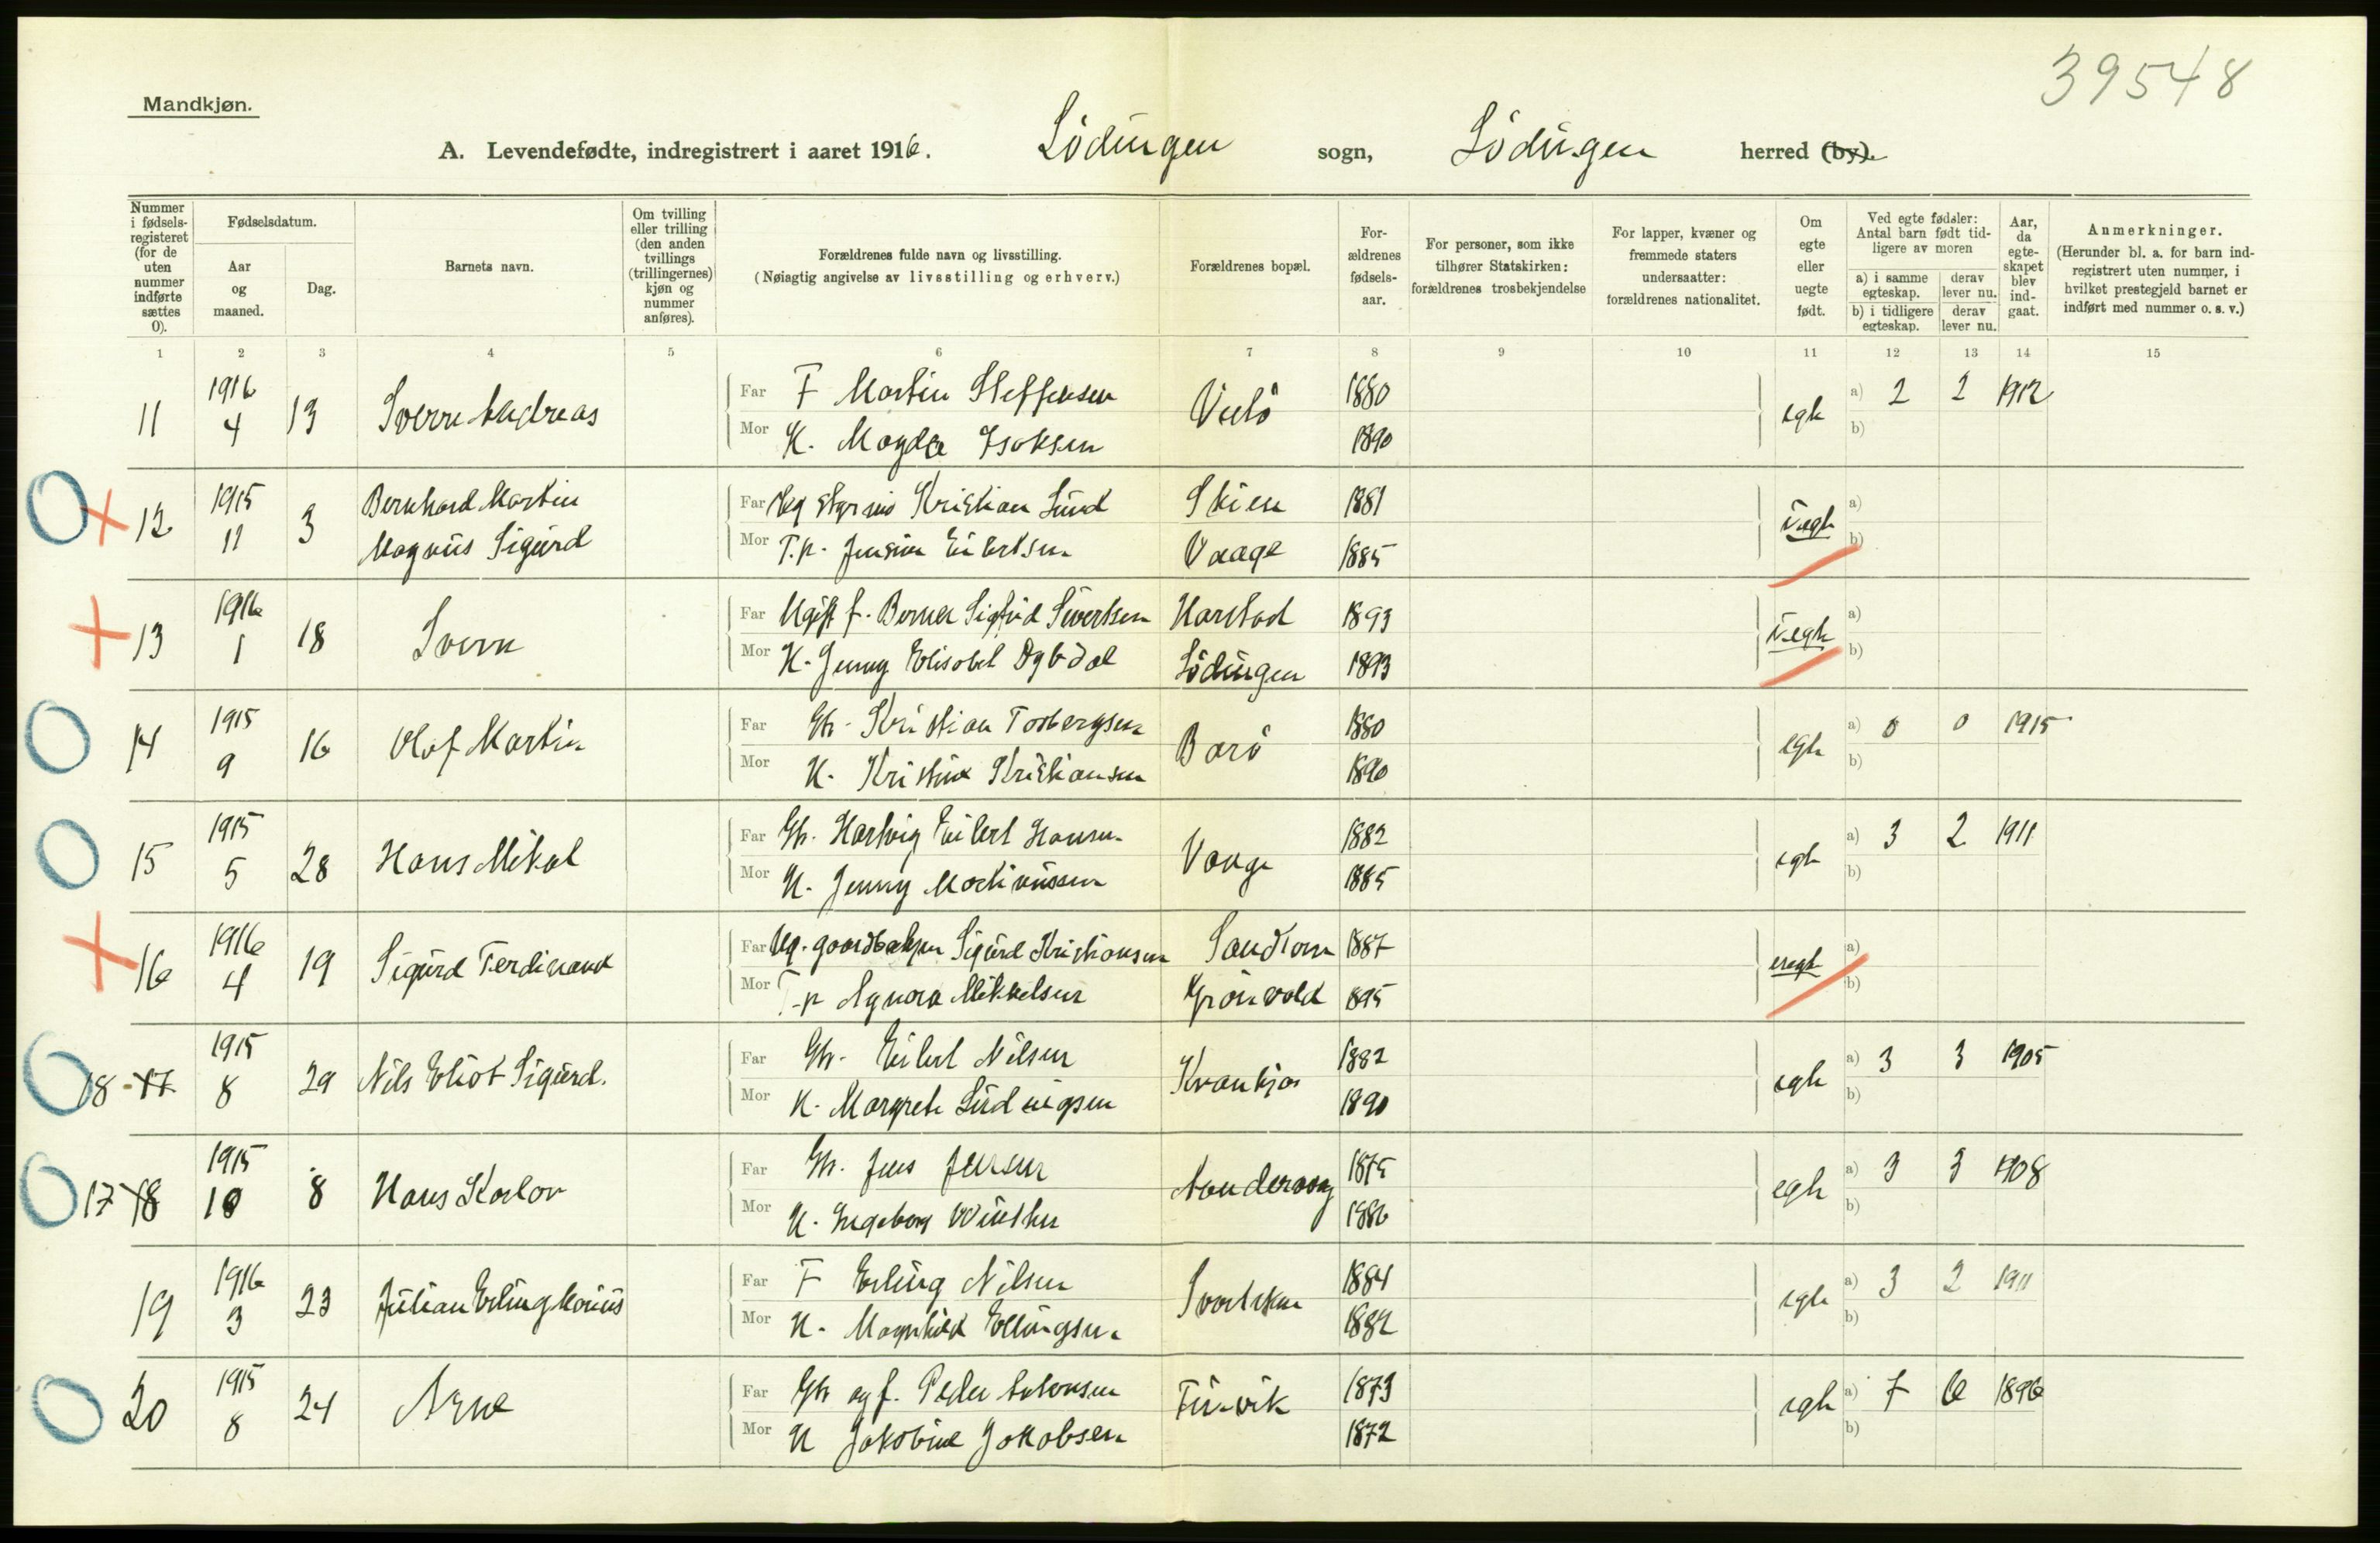 39548
Mandkjøn.
A. Levendefødte, indregistrert i aaret 1916. Lödingen sogn, Lödingen herred (by).
Nummer i fødsels-registeret (for de uten nummer indførte sættes 0).
Fødselsdatum.
Aar og maaned.
Dag.
Barnets navn.
Om tvilling eller trilling (den anden tvillings (trillingernes) kjøn og nummer anføres).
Forældrenes fulde navn og livsstilling.
(Nøiagtig angivelse av livsstilling og erhverv.)
Forældrenes bopæl.
For-ældrenes fødsels-aar.
For personer, som ikke tilhører Statskirken: forældrenes trosbekjendelse
For lapper, kvæner og fremmede staters undersaatter: forældrenes nationalitet.
Om egte eller uegte født.
Ved egte fødsler: Antal barn født tid-ligere av moren
a) i samme egteskap.
derav lever nu.
b) i tidligere egteskap.
derav lever nu.
Aar, da egte-skapet blev ind-gaat.
Anmerkninger.
(Herunder bl. a. for barn ind-registrert uten nummer, i hvilket prestegjeld barnet er indført med nummer o. s. v.)
1 2 3 4 5 6 7 8 9 10 11 12 13 14 15
11 1916 4 13 Sverre Andreas
Far F Martin Steffensen 1880 a) 2 2 1912
Mor K. Magda Isaksen 1890 egte b)
12 1915 11 3 Bernhard Martin Magnus Sigurd
Far Ug Kristian Lund Skien 1881 a)
Mor T.p. Jensine Eilertsen Vaage 1885 uegte b)
13 1916 1 18 Sverre
Far Ugift f. Berner Sigfrid Sivertsen Harstad 1893 a)
Mor K. Jenny Elisabet Dybdal Lödingen 1893 uegte b)
14 1915 9 16 Olaf Martin
Far Gb. Kristian Torbergsen Barö 1880 a) 0 0 1915
Mor K. Kristine Kristiansen 1890 egte b)
15 1915 5 28 Hans Mikal
Far Gb. Hartvig Eilert Hansen Vaage 1882 a) 3 2 1911
Mor K. Jenny Martinussen 1885 egte b)
16 1916 4 19 Sigurd Ferdinand
Far Ug. Sigurd Kristiansen Sandtorv 1887 a)
Mor T.p Agnora Mikkelsen Grönvold 1895 uegte b)
18 - 17 1915 8 29 Nils Eliot Sigurd.
Far Gb. Eilert Nilsen 1882 a) 3 3 1905
Mor K. Margrete Ludvigsen 1890 egte b)
17 18 1915 10 8 Hans Karlov
Far Gb. Jens Jensen 1875 a) 3 3 1908
Mor K. Ingeborg Winther 1886 egte b)
19 1916 3 23 Julian Erling
Far F Erling Nilsen 1884 a) 3 2 1911
Mor K. Magnhild Ellingsen 1882 egte b)
20 1915 8 24 Arne
Far Gb og f. Peder Antonsen 1873 a) 7 6 1896
Mor K Jakobine Jakobsen 1872 egte b)